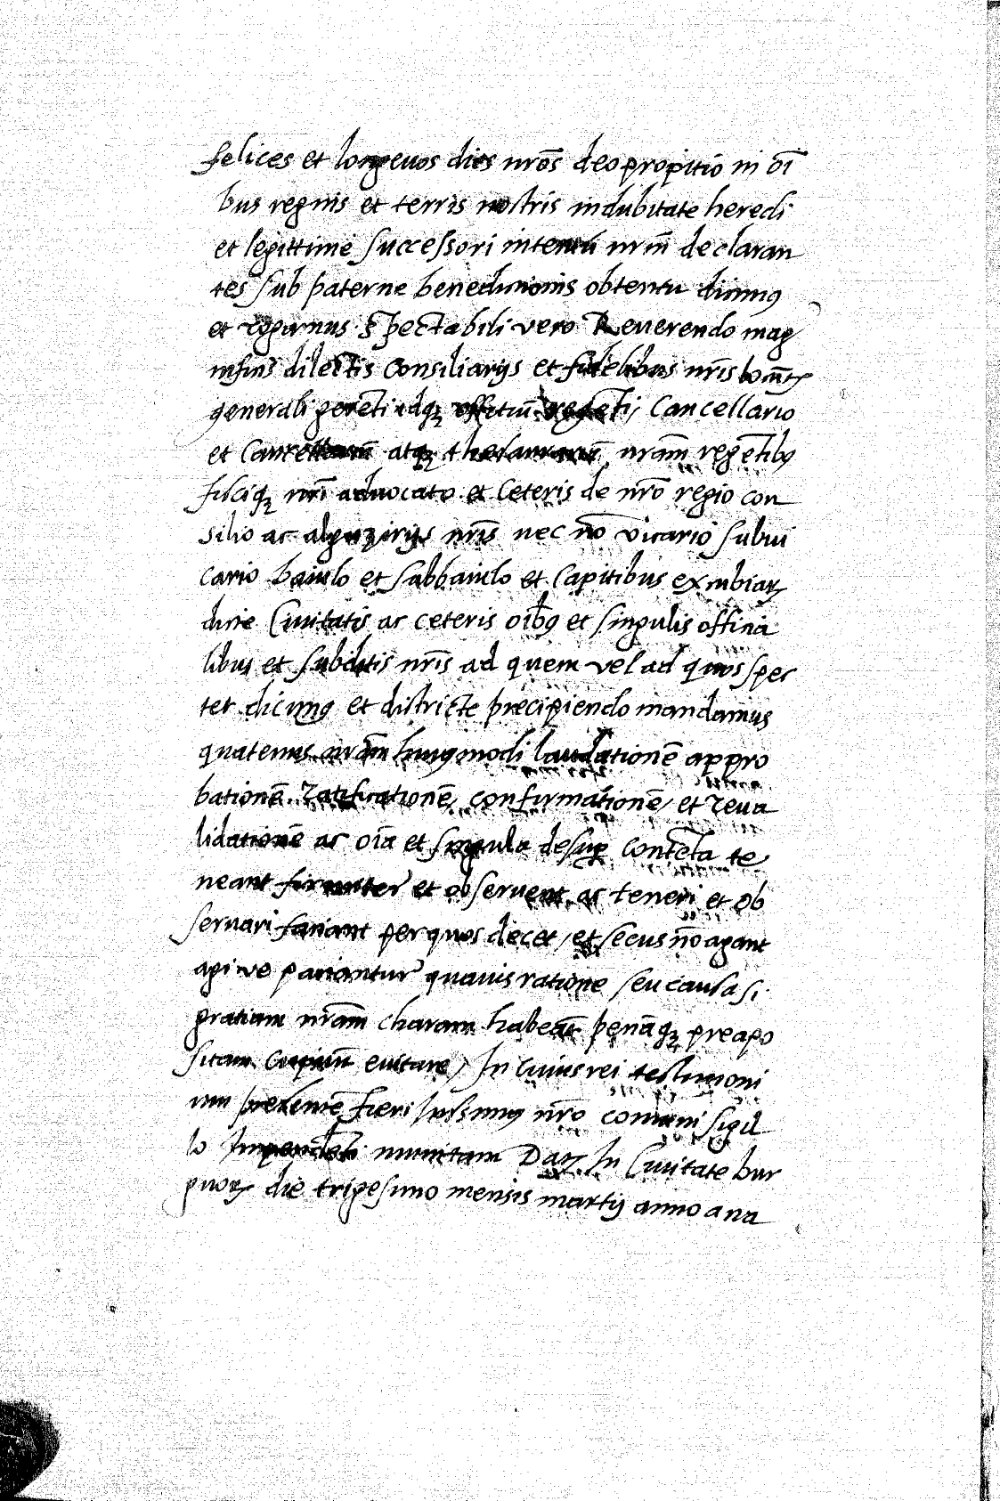 felices et longeuos dies nrōs deo propitio in oī
bus regnis et terris nostris indubitate heredi
et legittime successori intentū nrm̄ declaran
tes sub paterne benedictionis obtentu dicimꝯ
et rogamus Spectabili vero Reuerendo mag
nificis dilectis Consiliarijs et fidelibus nrīs
generali gerēti idqꝫ officiū regēti, Cancellario
et atqꝫ nrām regētibꝯ
fisciqꝫ nrī aduocato et Ceteris de nrō regio con
silio ac alguzirijs nrīs nec nō vicario subui
cario baiulo et subbaiulo et Capitibus excubiaꝝ
dicte Ciuitatis ac ceteris oībꝯ et singulis officia
libus et subditis nrīs ad quem vel ad quos spec
tet dicimꝯ et districte precipiendo mandamus
quatenus nrām huiꝯmodi laudationē appro
bationē Ratificationē, confirmationē, et reua
lidationē ac oīa et singula desuꝑ contēta te
neant firmiter et obseruent ac teneri et ob
seruari faciant per quos decet, et secus nō agant
agi ve patiantur quauis ratione seu causa si
gratiam nrām charam habeāt penāqꝫ preapo
sitam cupiūt euitare, In cuius rei testimoni
um presentē fieri Iussimꝯ nrō comuni sigil
lo Impendēti munitam Daꝝ In Ciuitate bur
guoꝝ die trigesimo mensis martij anno a na